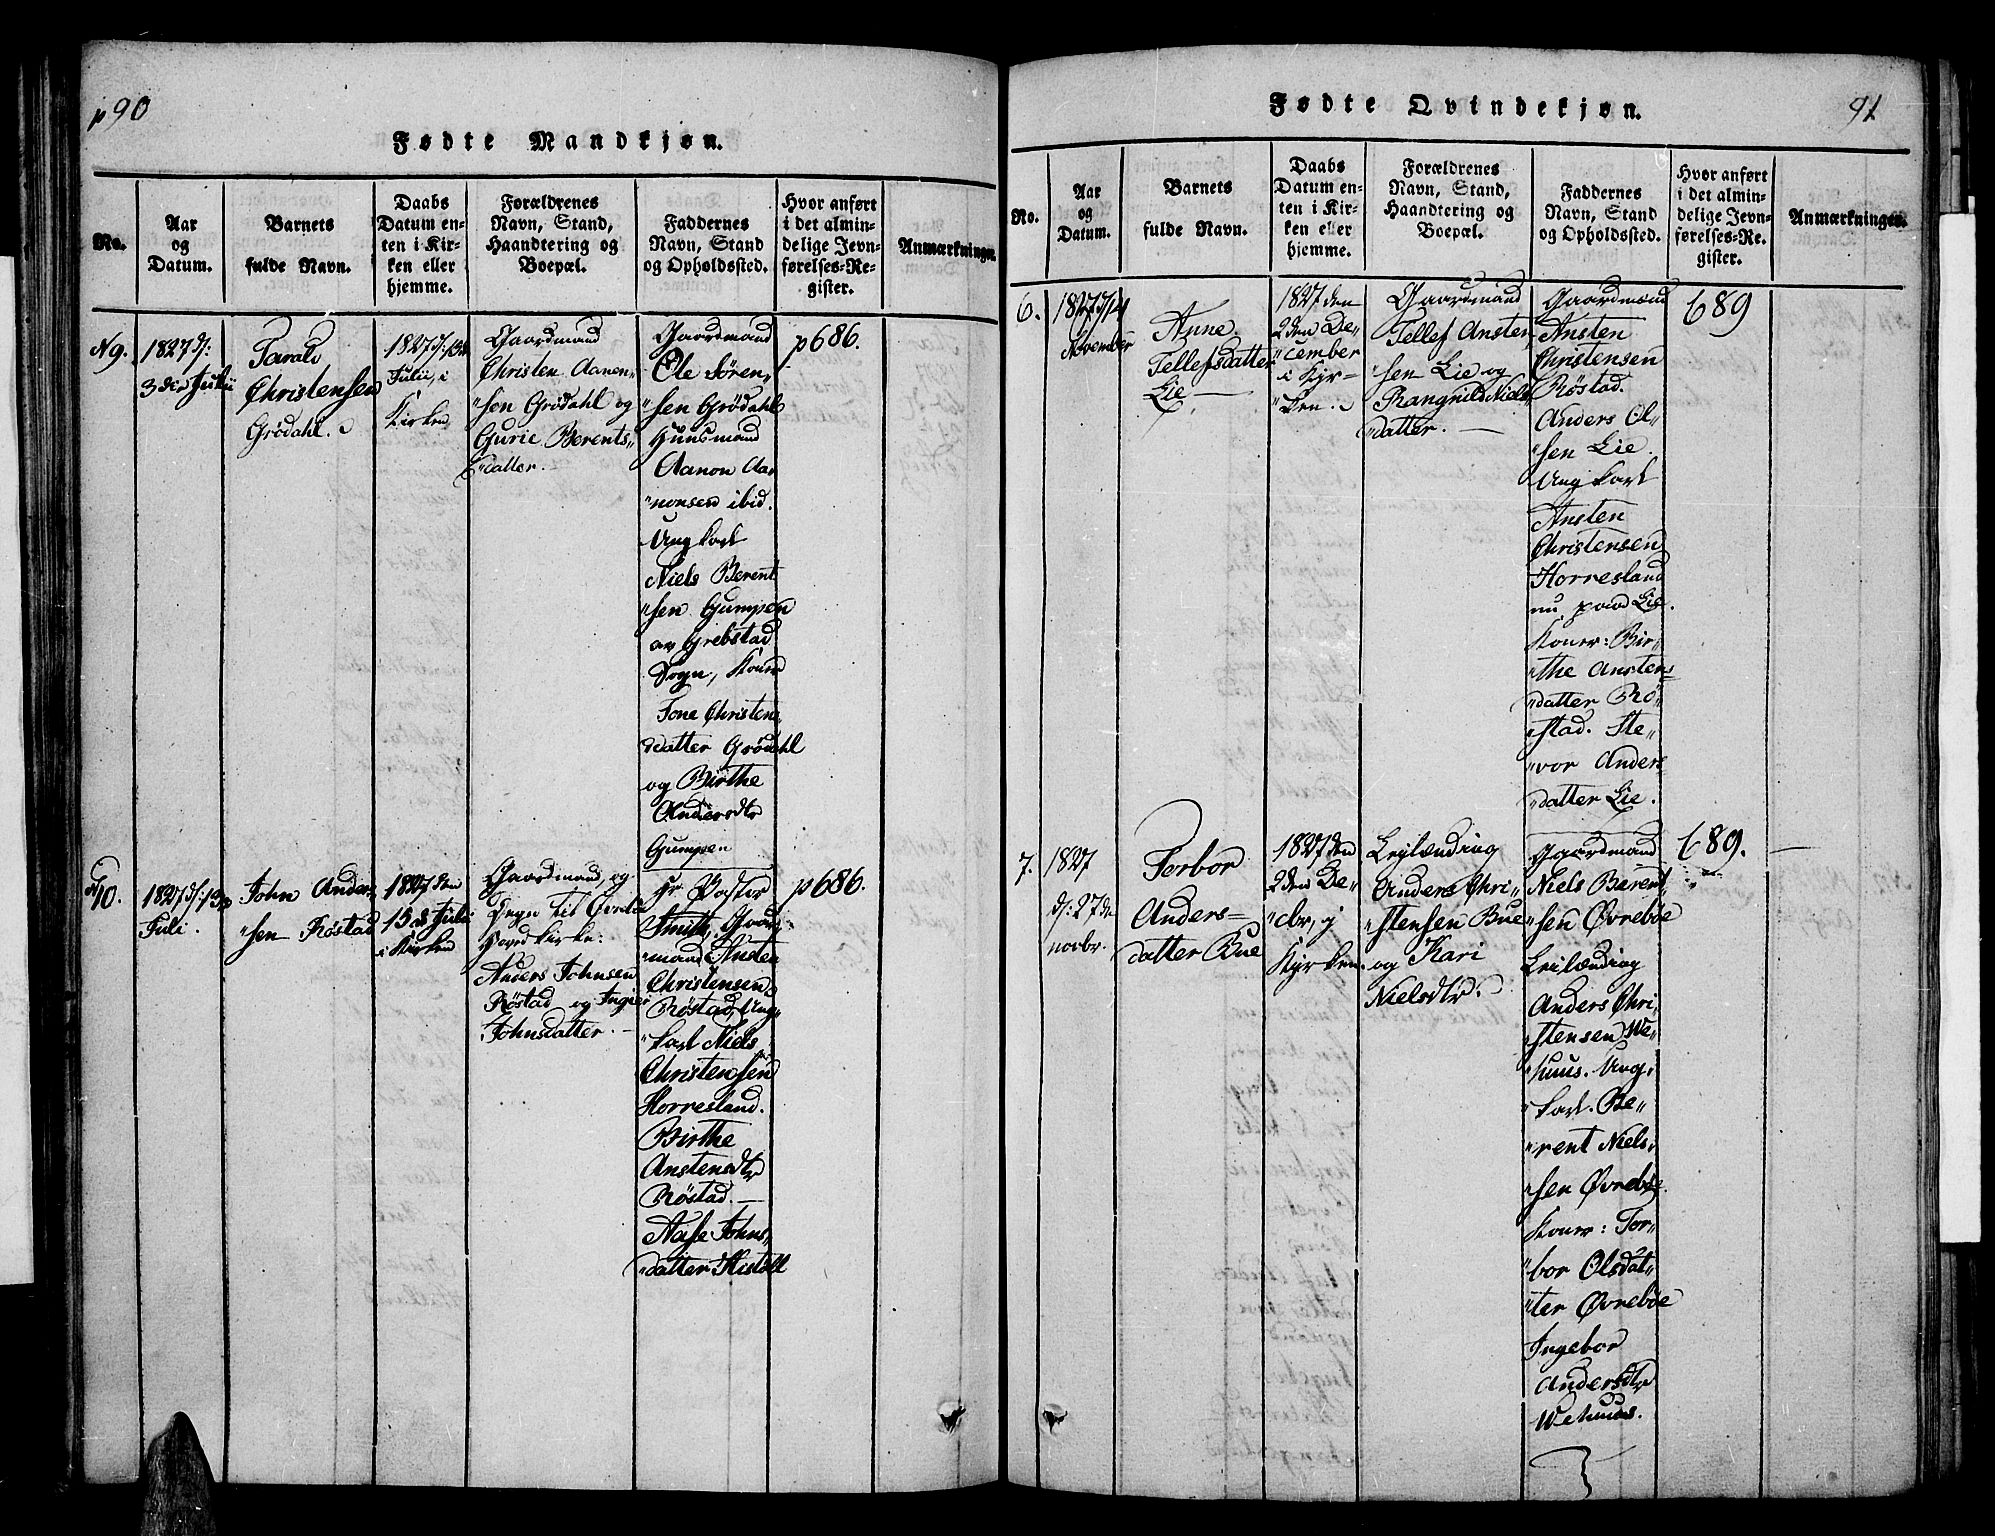 p 90
Fødte Mandkjøn.
No.
Aar
og
Datum.
Barnets
fulde Navn.
Daabs
Datum en-
ten i Kir-
ken eller
hjemme.
Forældrenes
Navn, Stand,
Haandtering og
Boepæl.
Faddernes
Navn, Stand
og Opholdssted.
Hvor anført
i det almin-
delige Jevn-
førelses-Re-
gister.
Anmærkninger.
N 9.
1827 d:
3die Julii
Taralv
Christensen
Grødahl.
1827 d: 13de
Julii, i
Kirken
Gaardmand
Christen Aanen-
"sen Grødahl og
Gurie Berents-
"datter.
Gaardmand
Ole Sören-
"sen Grödahl
Huusmand
Aanon Aa-
"nonsen ibid.
Ung Karl
Niels Berent
"sen Gumpen
av Grebstad
Sogn, Kone
Tone Christens
datter Grödahl
og Birthe
Andersdtr
Gumpen
p 686.
10.
1827 d: 13de
Juli.
John Anders-
"sen Röstad
1827 den
15de Julii
i Kirken
Gaardmand, og
Degn til Øvrebø
Hovedkirke:
Anders Johnsen
Röstad og Ingier
Johnsdatter.
Hr Pastor
Smith, Gaard-
"mand Ansten
Christensen
Röstad, Ung-
"karl Niels
Christensen
Horresland.
Birthe
Anstensdtr
Röstad.
Aase Johns-
"datter Stistöll
p 686.
91
Fødte Qvindekjøn.
No.
Aar
og
Datum.
Barnets
fulde Navn.
Daabs
Datum en-
ten i Kir-
ken eller
hjemme.
Forældrenes
Navn, Stand,
Haandtering og
Boepæl.
Faddernes
Navn, Stand
og Opholdssted.
Hvor anført
i det almin-
delige Jevn-
førelses-Re-
gister.
Anmærkninger.
6.
1827 d/14
November
Anne
Tellefsdatter
Lie
1827 den
2den De-
"cember
i Kyr-
"ken.
Gaardmand
Tellef Ansten-
"sen Lie og
Rangnild Niels-
"datter.
Gaardmand
Ansten
Christensen
Röstad.
Anders Ol-
"sen Lie.
Ung Karl
Ansten
Christensen
Horresland
nu paa Lie.
Koner: Bir-
"the Anstens-
"datter Rö-
"stad. Ste-
"vor Anders-
"datter Lie.
689
7.
1827
d: 27de
novbr.
Torbor
Anders-
datter Bue
1827 den
2den De-
"cbr, i
Kyrken.
Leilænding
Anders Chri-
"stensen Bue
og Kari
Nielsdtr.
Gaardmand
Niels Berent-
"sen Øvrebøe
Leilænding
Anders Chri-
"stensen We-
"huus. Ung-
"karl. Be-
"rent Niels-
"sen Øvrebøe.
Koner: Tor-
"bor Olsdat-
"ter Øvrebøe
Ingebor
Andersdtr
Wehuus.
689.